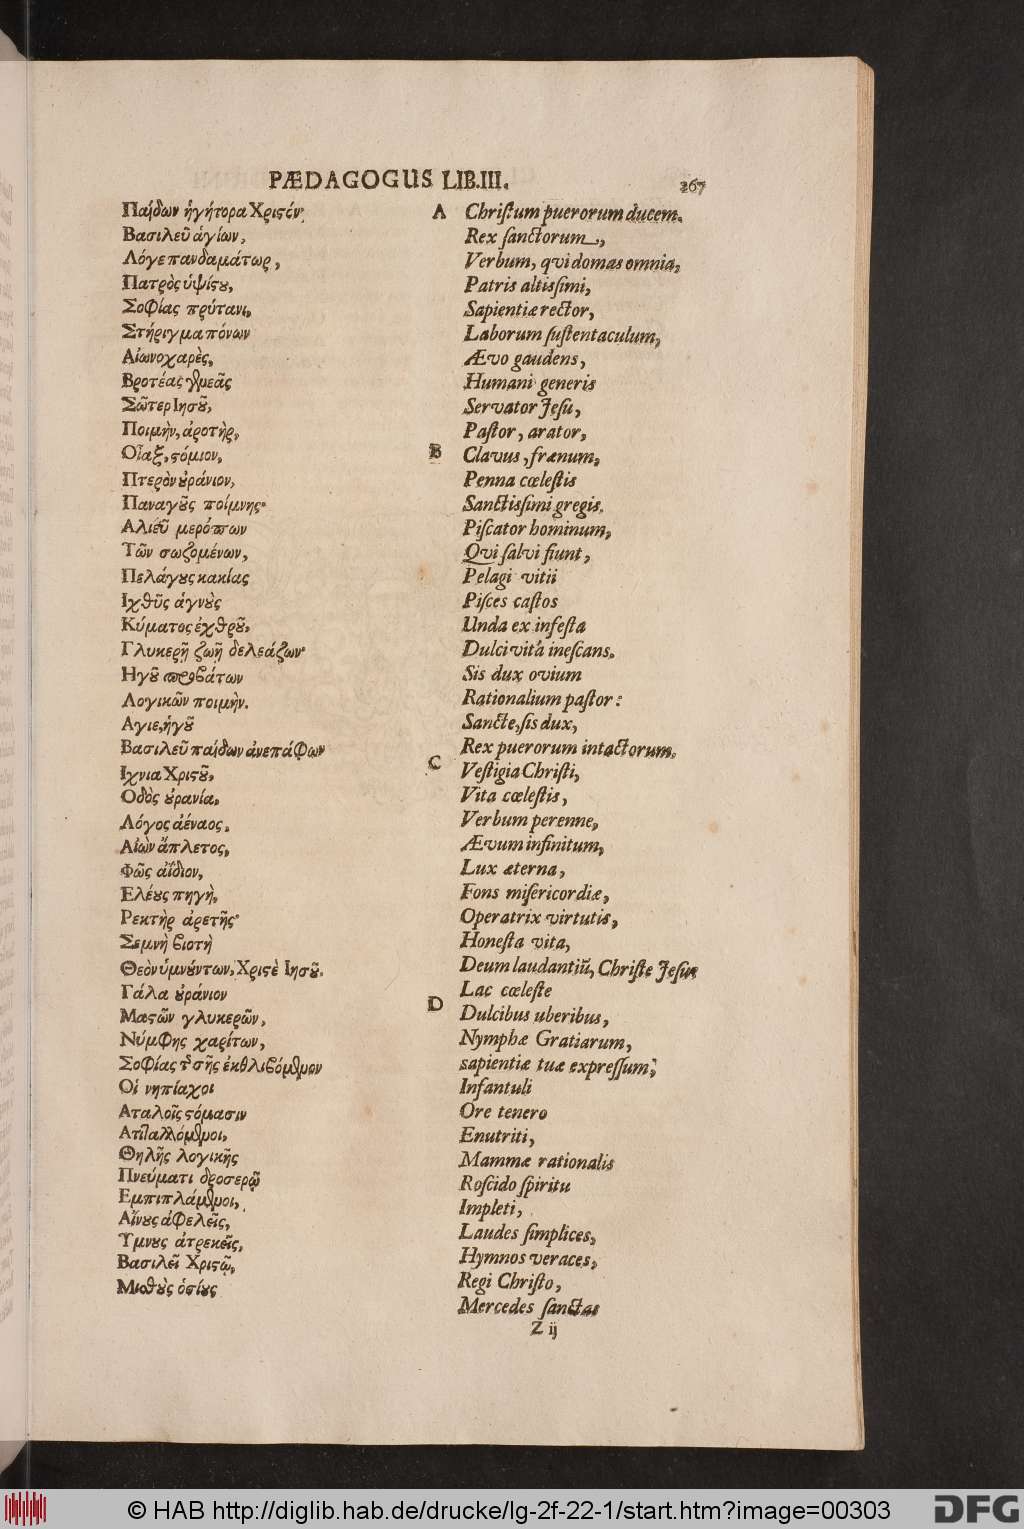 PÆDAGOGUS LIB.III.
267
Παίδων ἡγήτορα Χριστόν·
Βασιλεῦ ἁγίων,
Λόγε πανδαμάτωρ,
Πατρὸς ὑψίστου,
Σοφίας πρύτανι,
Στήριγμα πόνων
Αἰωνοχαρὲς,
Βροτέας γενεᾶς
Σῶτερ Ιησοῦ,
Ποιμὴν, ἀροτὴρ,
Οἶαξ, στόμιον,
Πτερὸν οὐράνιον,
Παναγοῦς ποίμνης·
Αλιεῦ μερόπων
Τῶν σωζομένων,
Πελάγους κακίας
Ιχθῦς ἁγνοὺς
Κύματος ἐχθροῦ,
Γλυκερῇ ζωῇ δελεάζων·
Ηγοῦ προβάτων
Λογικῶν ποιμὴν.
Αγιε, ἡγοῦ
Βασιλεῦ παίδων ἀνεπάφων
Ιχνια Χριστοῦ,
Οδὸς οὐρανία,
Λόγος ἀέναος,
Αἰὼν ἄπλετος,
Φῶς ἀΐδιον,
Ελέους πηγὴ,
Ρεκτὴρ ἀρετῆς·
Σεμνὴ βιοτὴ
Θεὸν ὑμνούντων, Χριστὲ Ιησοῦ.
Γάλα οὐράνιον
Μαστῶν γλυκερῶν,
Νύμφης χαρίτων,
Σοφίας τῆς σῆς ἐκθλιβόμενον
Οἱ νηπίαχοι
Αταλοῖς στόμασιν
Ατιταλλόμενοι,
Θηλῆς λογικῆς
Πνεύματι δροσερῷ
Εμπιπλάμενοι,
Αἴνους ἀφελεῖς,
Υμνους ἀτρεκεῖς,
Βασιλεῖ Χριστῷ,
Μισθοὺς ὁσίους
A Christum puerorum ducem.
Rex sanctorum,
Verbum, qvi domas omnia,
Patris altissimi,
Sapientiæ rector,
Laborum sustentaculum,
Ævo gaudens,
Humani generis
Servator Jesu,
Pastor, arator,
B Clavus, frænum,
Penna cœlestis
Sanctissimi gregis.
Piscator hominum,
Qvi salvi fiunt,
Pelagi vitii
Pisces castos
Unda ex infesta
Dulci vitâ inescans.
Sis dux ovium
Rationalium pastor:
Sancte, sis dux,
Rex puerorum intactorum.
C Vestigia Christi,
Vita cœlestis,
Verbum perenne,
Ævum infinitum,
Lux æterna,
Fons misericordiæ,
Operatrix virtutis,
Honesta vita,
Deum laudantiũ, Christe Jesu
Lac cœleste
D Dulcibus uberibus,
Nymphæ Gratiarum,
sapientiæ tuæ expressum;
Infantuli
Ore tenero
Enutriti,
Mammæ rationalis
Roscido spiritu
Impleti,
Laudes simplices,
Hymnos veraces,
Regi Christo,
Mercedes sanctas
Z ij
© HAB http://diglib.hab.de/drucke/lg-2f-22-1/start.htm?image=00303
DFG